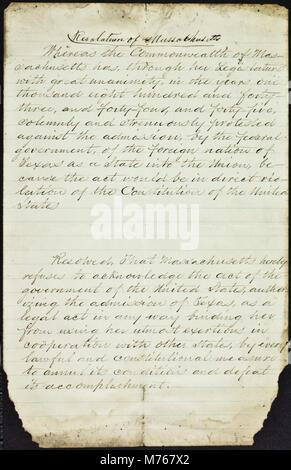 Resolution of Massachusetts
Whereas the Commonwealth of Mas-
sachusetts has, through her Legislature
with great unanimity, in the year one
thousand eight hundred and forty-
three, and forty-four, and forty five,
solemnly and strenuously protested
against the admission, by the federal
government, of the foreign nation of
Texas as a State into the Union, be
cause the act would be in direct vio-
lation of the Constitution of the United
States
Resolved, That Massachusetts hereby
refuses to acknowledge the act of the
government of the United States, author
izing the admission of Texas, as a
legal act in any way binding her
from using her utmost exertions in
cooperation with other States, by every
lawful and constitutional measure
to annul its conditions and defeat
its accomplishment.
alamy
alamy
alamy
M767X2
www.alamy.com